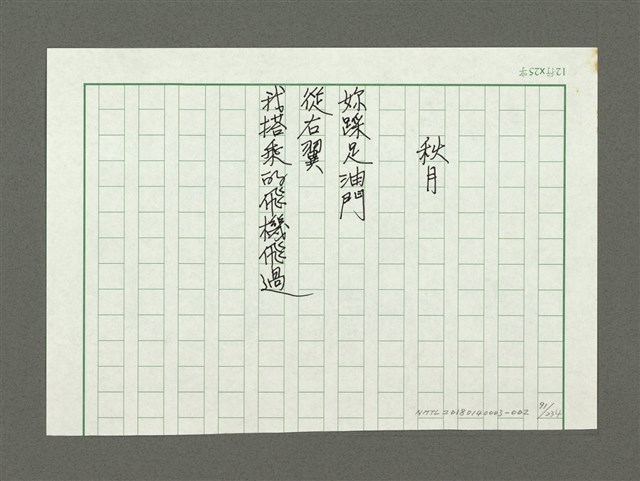 秋月
妳踩足油門
從右翼
我搭乘的飛機飛過
12行X25字
NMTL 20180140003-002
91/234